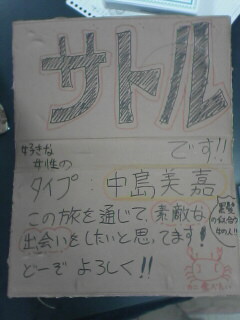 サトル
です!!
好きな
女性の
タイプ：中島美嘉
この旅を通じて、素敵な
出会いをしたいと思ってます!
どーぞ よろしく!!
黒髪
の似合う
女の人!!